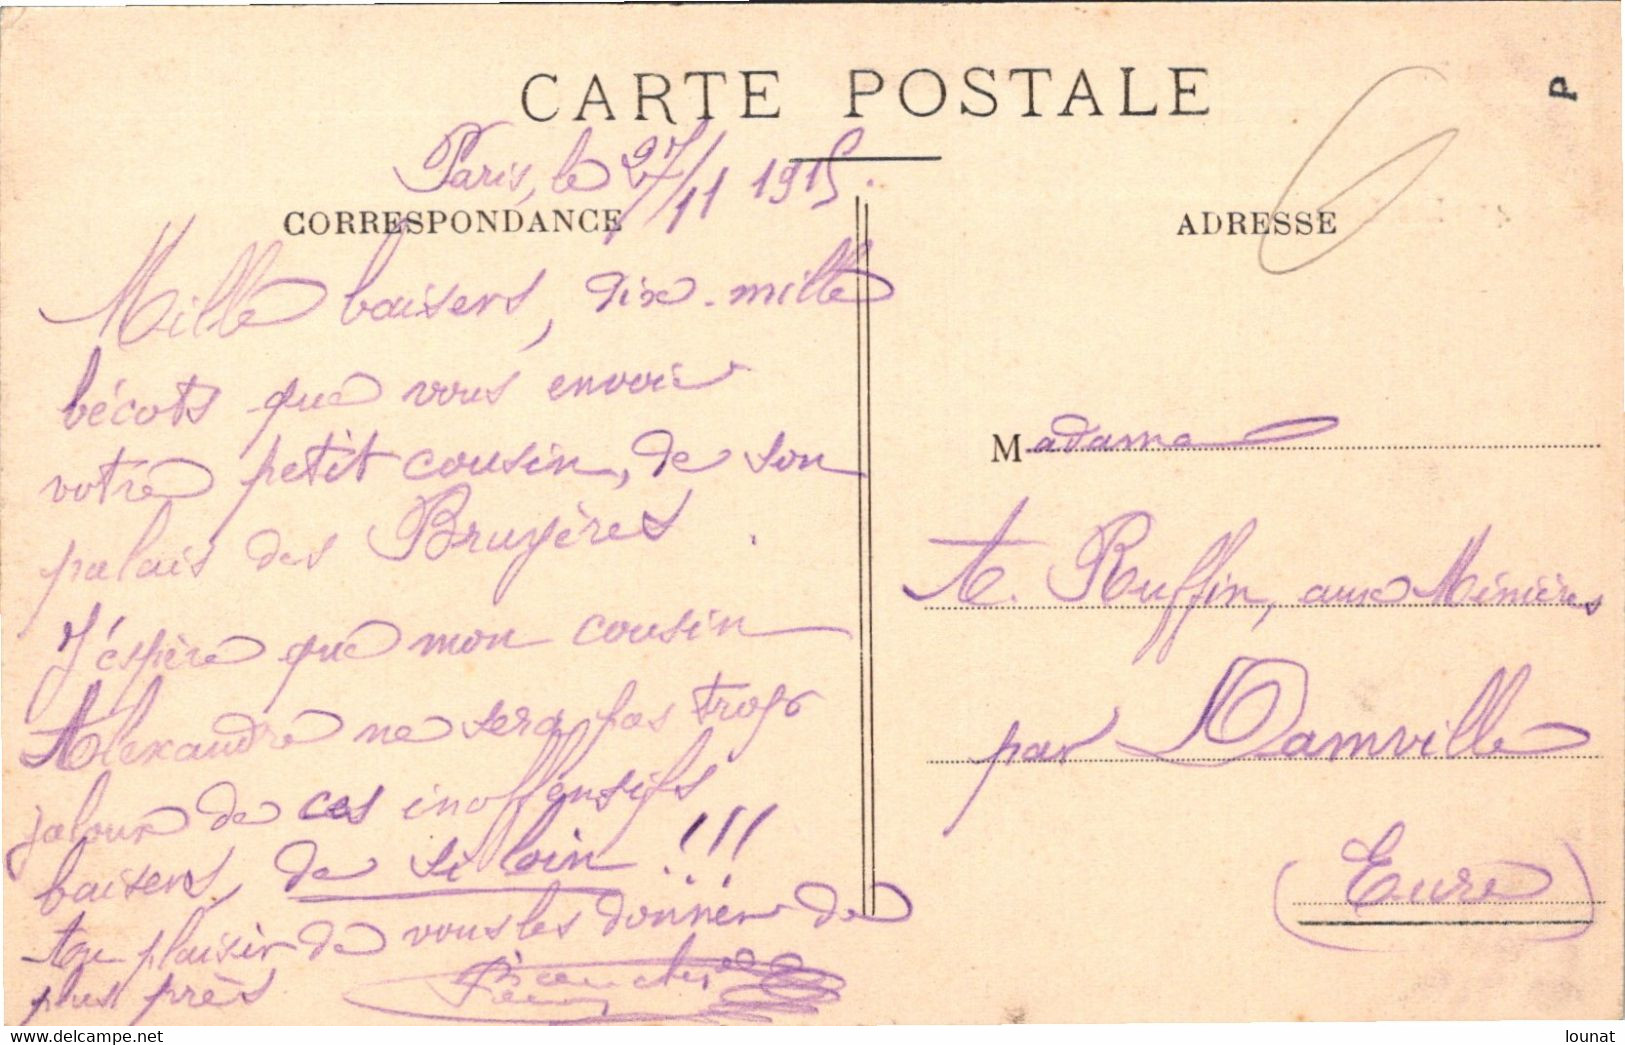 CARTE POSTALE
P
Paris, le 27/11 1915.
CORRESPONDANCE
Mille baisers, dix-mille
bécots que vous envoie
votre petit cousin, de son
palais des Bruyères.
J'éspère que mon cousin
Alexandre ne sera pas trop
jaloux de ces inoffensifs
baisers, de si loin !!!
Au plaisir de vous les donner de
plus près
ADRESSE
Madame
A. Ruffin, aux Minières
par Damville
(Eure)
lounat